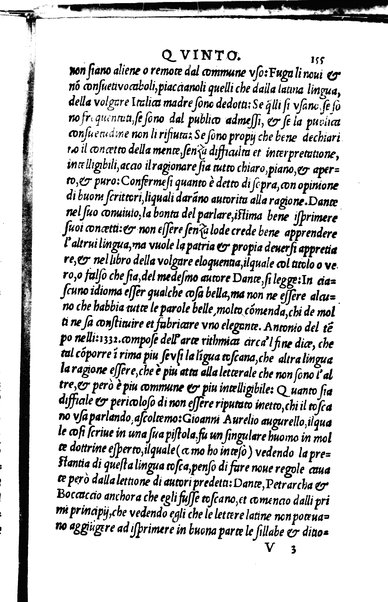 QVINTO. 155
non siano aliene o remote dal commune vso: Fuga li noui &
nõ consueti vocaboli, piaccianoli quelli che dalla latina lingua,
della volgare Italica madre sono dedotti: Se q̃lli si vsano, se so
no frequentati, se sono dal publico admessi, & se la publica
consuetudine non li rifiuta: Se sono propy che bene dechiari
no il concetto della mente, senza difficulta et interpretatione,
intelligibili, accio il ragionare sia tutto chiaro, piano, & aper-
to, & puro: Confermesi quanto è detto di sopra, con opinione
di buoni scrittori, li quali darãno autorita alla ragione. Dante
nel suo conuiuio, la bonta del parlare, istima bene isprimere
suoi concetti: & non essere senza lode crede bene apprendere
l'altrui lingua, ma vuole la patria & propia deuersi appretia
re, & nel libro della volgare eloquentia, il quale col titolo o ve
ro, o falso che sia, del medesmo autore Dante, si legge: In cia-
scuno idioma esser qualche cosa bella, ma non ne essere alcu-
no che habbia tutte le parole belle, molto cõmenda, chi de mol
ti ne sa constituire et fabricare vno elegante. Antonio del tẽ
po nelli. 1332. compose dell'arte rithmica circa'l fine dice, che
tal cõporre ĩ rima piu se vsi la lĩgua toscana, che altra lingua
la ragione essere, che è piu atta alla letterale che non sono l'al
tre, & però è piu commune & piu intelligibile: Quanto sia
difficile & pericoloso di non essere riputato inetto, chi il tosca
no vsa parlando, ascoltemo: Gioanni Aurelio augurello, il qua
le cosi scriue in una sua pistola, fu un singulare huomo in mol
te dottrine esperto, il quale (come ho inteso) vedendo la pre-
stantia di questa lingua tosca, penso di fare noue regole caua
te però dalla lettione di autori predetti: Dante, Petrarcha &
Boccaccio anchora che egli fusse toscano, et comencio dalli pri
mi principij, che vedendo egli che le lettere latine non poteua-
no aggiũgere ad isprimere in buona parte le sillabe & ditio-
V 3